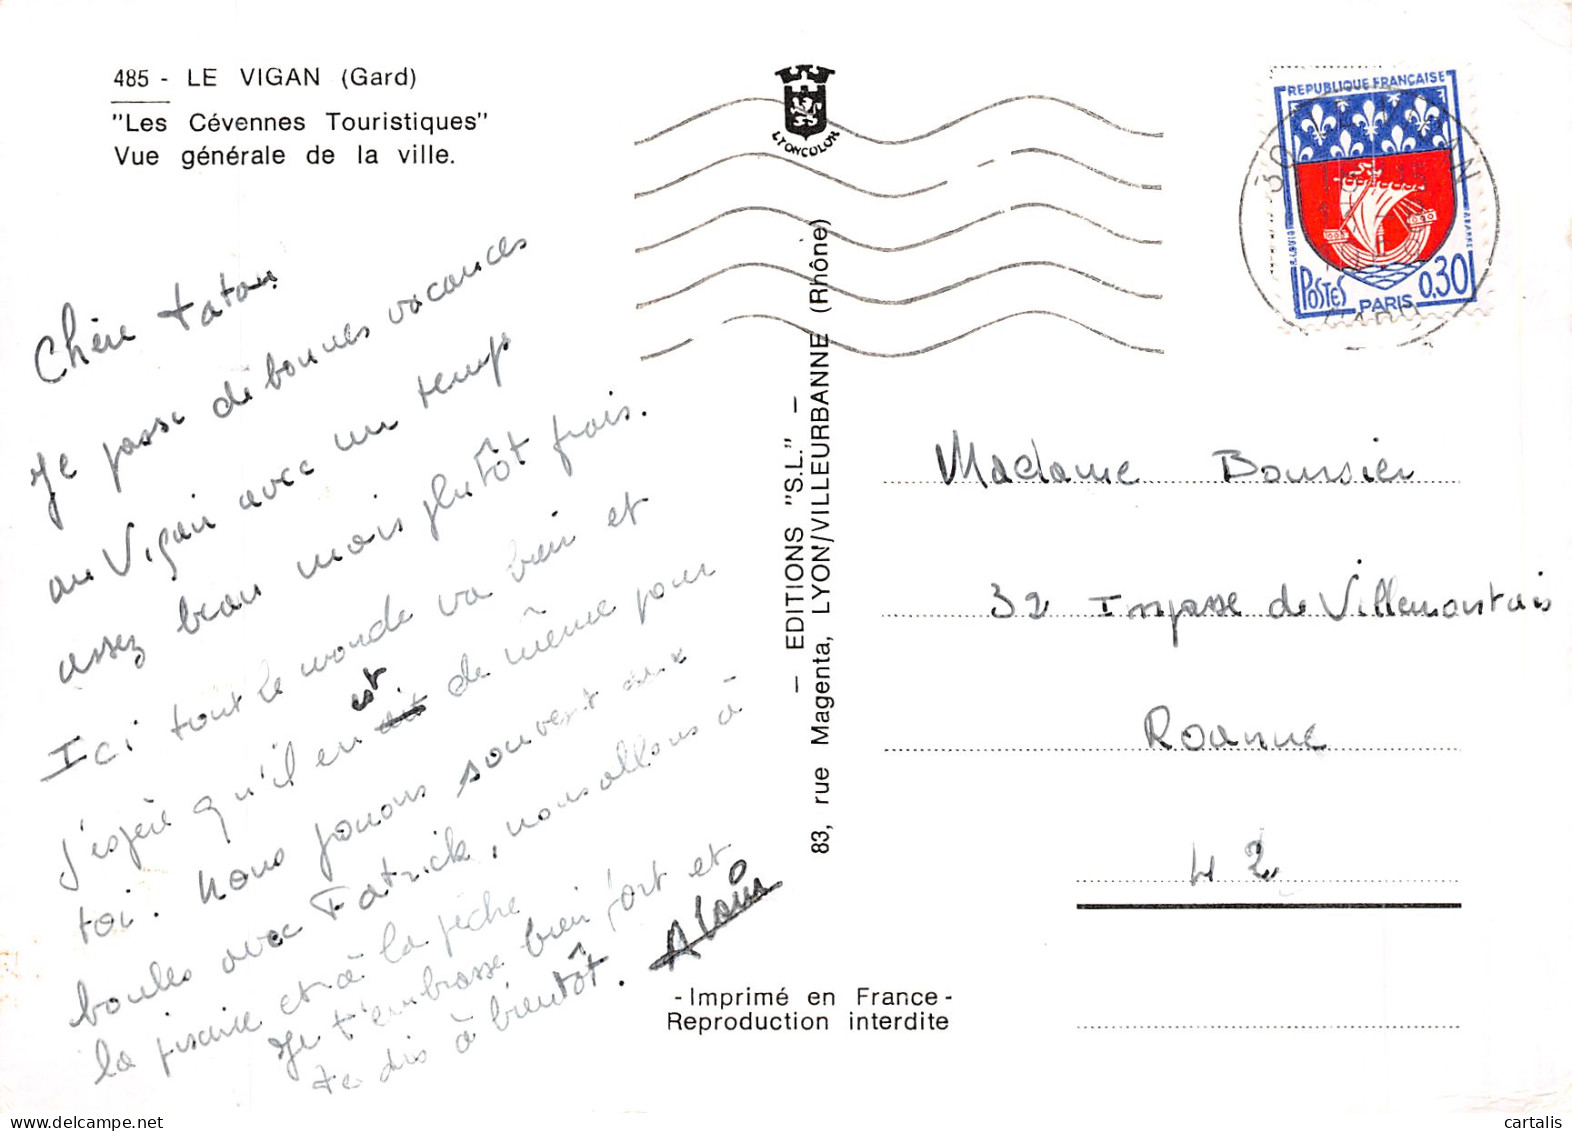 485 - LE VIGAN (Gard)
"Les Cévennes Touristiques"
Vue générale de la ville.
LYONCOLOR
REPUBLIQUE FRANÇAISE
POSTES
PARIS
0,30
30 LE VIGAN
GARD
Chère tatan
Je passe de bonnes vacances
au Vigan avec un temps
assez beau mais plutôt frais.
Ici tout le monde va bien et
j'espère qu'il en est de même pour
toi. Nous jouons souvent aux
boules avec Patrick, nous allons à
la piscine et à la pêche
Je t'embrasse bien fort et
te dis à bientôt. Alain
— EDITIONS "S.L." —
83, rue Magenta, LYON/VILLEURBANNE (Rhône)
Madame Boursier
32 Impasse de Villemontais
Roanne
42
- Imprimé en France -
Reproduction interdite
cartalis